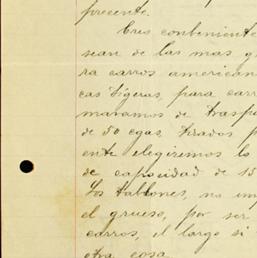 precente.
Eres conbeniente
sean de las mas g
ra carros american
cas ligeras, para carr
maramos de traspo
de 50 egas. tirados p
ente elegiremos lo
de capacidad de 15
Los tablones, no imp
el grueso, por ser
carros, el largo si
otra cosa